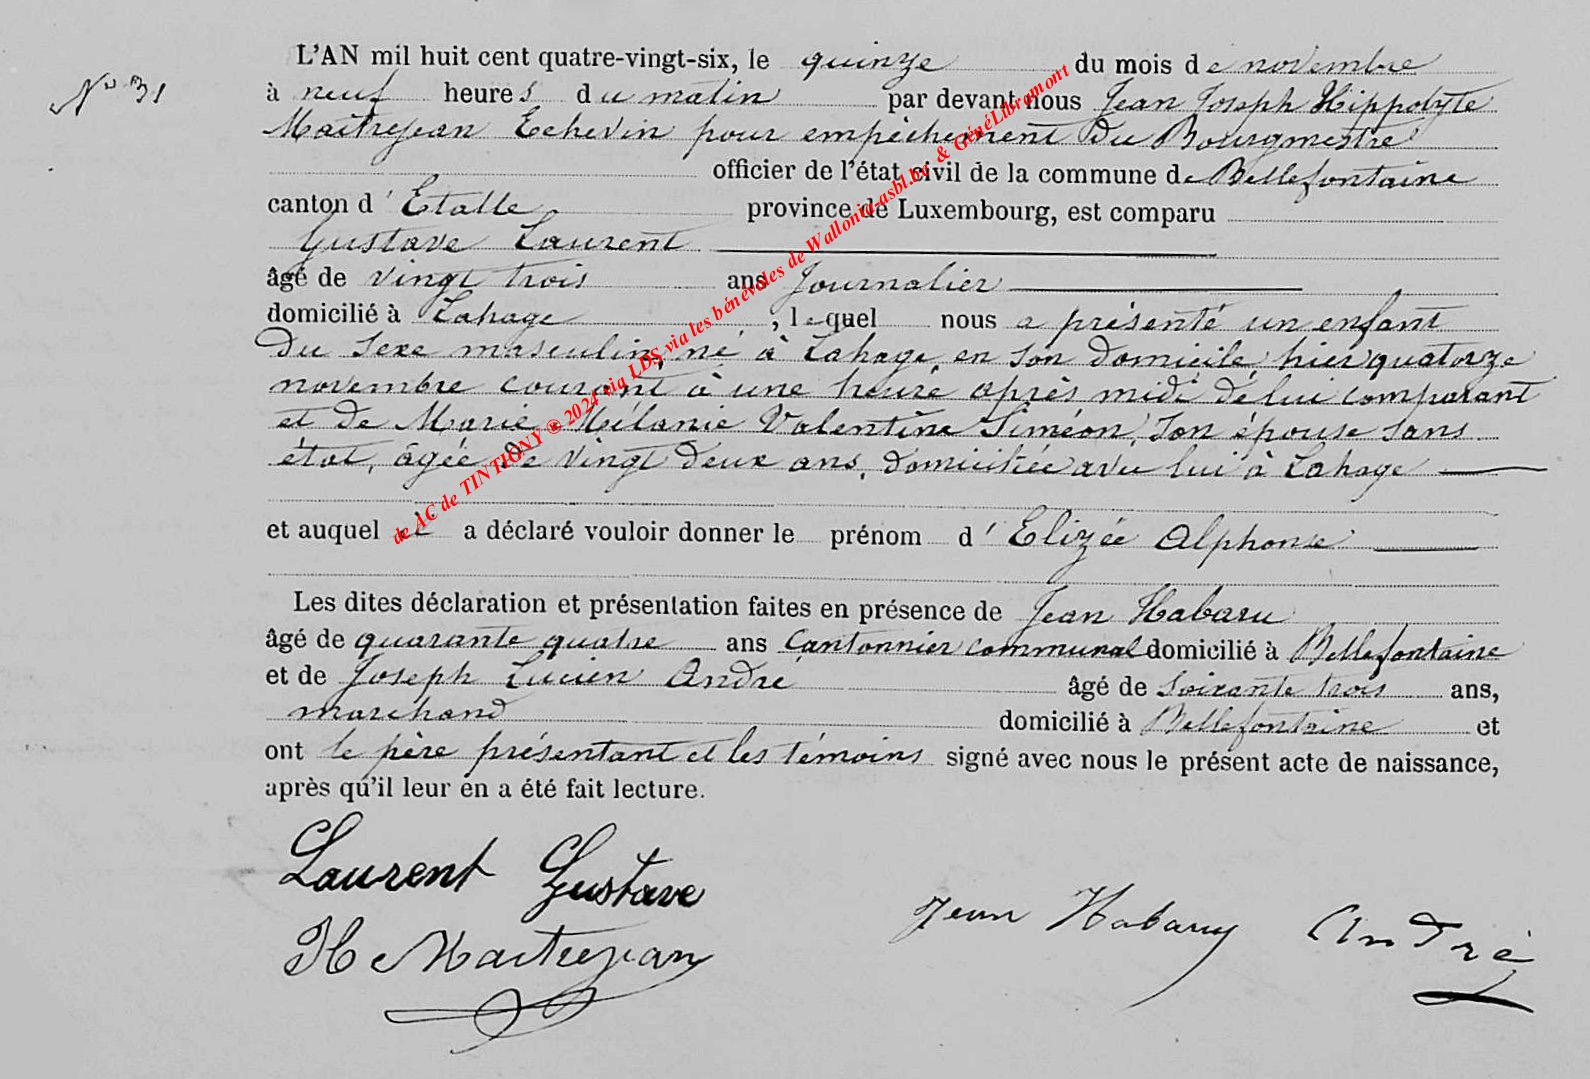 N° 31
L'AN mil huit cent quatre-vingt-six, le quinze du mois de novembre
à neuf heures du matin par devant nous Jean Joseph Hippolyte
Maitrejean Echevin pour empêchement du Bourgmestre
officier de l'état civil de la commune de Bellefontaine
canton d'Etalle province de Luxembourg, est comparu
Gustave Laurent
âgé de vingt trois ans Journalier
domicilié à Lahage, lequel nous a présenté un enfant
du sexe masculin, né à Lahage en son domicile, hier quatorze
novembre courant à une heure après midi de lui comparant
et de Marie Mélanie Valentine Siméon, son épouse sans
état, âgée de vingt deux ans, domiciliée avec lui à Lahage
et auquel il a déclaré vouloir donner le prénom d'Elizée Alphonse
Les dites déclaration et présentation faites en présence de Jean Habaru
âgé de quarante quatre ans Cantonnier communal domicilié à Bellefontaine
et de Joseph Lucien André âgé de soixante trois ans,
marchand domicilié à Bellefontaine et
ont le père présentant et les témoins signé avec nous le présent acte de naissance,
après qu'il leur en a été fait lecture.
Laurent Gustave
H Maitrejean
Jean Habaru André
de AC de TINTIGNY ® 2024 via LDS via les bénévoles de Wallonia-asbl.be & GénéLibramont